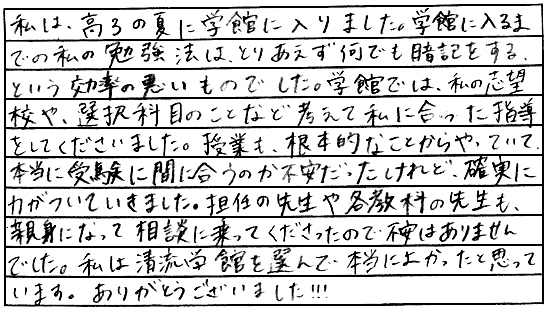 私は、高3の夏に学館に入りました。学館に入るま
での私の勉強法は、とりあえず何でも暗記をする、
という効率の悪いものでした。学館では、私の志望
校や、選択科目のことなど考えて私に合った指導
をしてくださいました。授業も、根本的なことからやっていて、
本当に受験に間に合うのか不安だったけれど、確実に
力がついていきました。担任の先生や各教科の先生も、
親身になって相談に乗ってくださったので不安はありません
でした。私は清流学館を選んで本当によかったと思って
います。ありがとうございました!!!